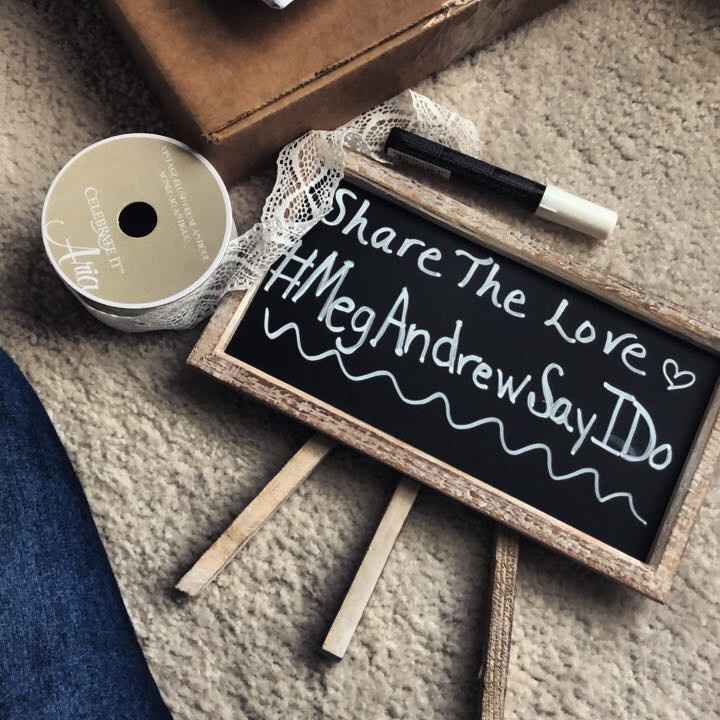 CELEBRATE IT™
Aria
Share The Love
#MegAndrewSayIDo